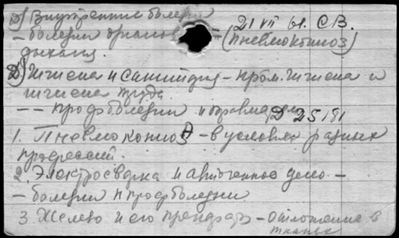 D) Внутренние болезни 21 VII 61. С.В.
– болезни органов – (Пневмокониоз)
дыхания.
D) Гигиена и санитария – пром. гигиена и
гигиена труда
– – профболезни и D 25191
1. Пневмокониоз – в условиях разных
профессий.
2. Электросварка и автогенное дело –
– болезни и профболезни
3. Железо и его – отложение в
тканях